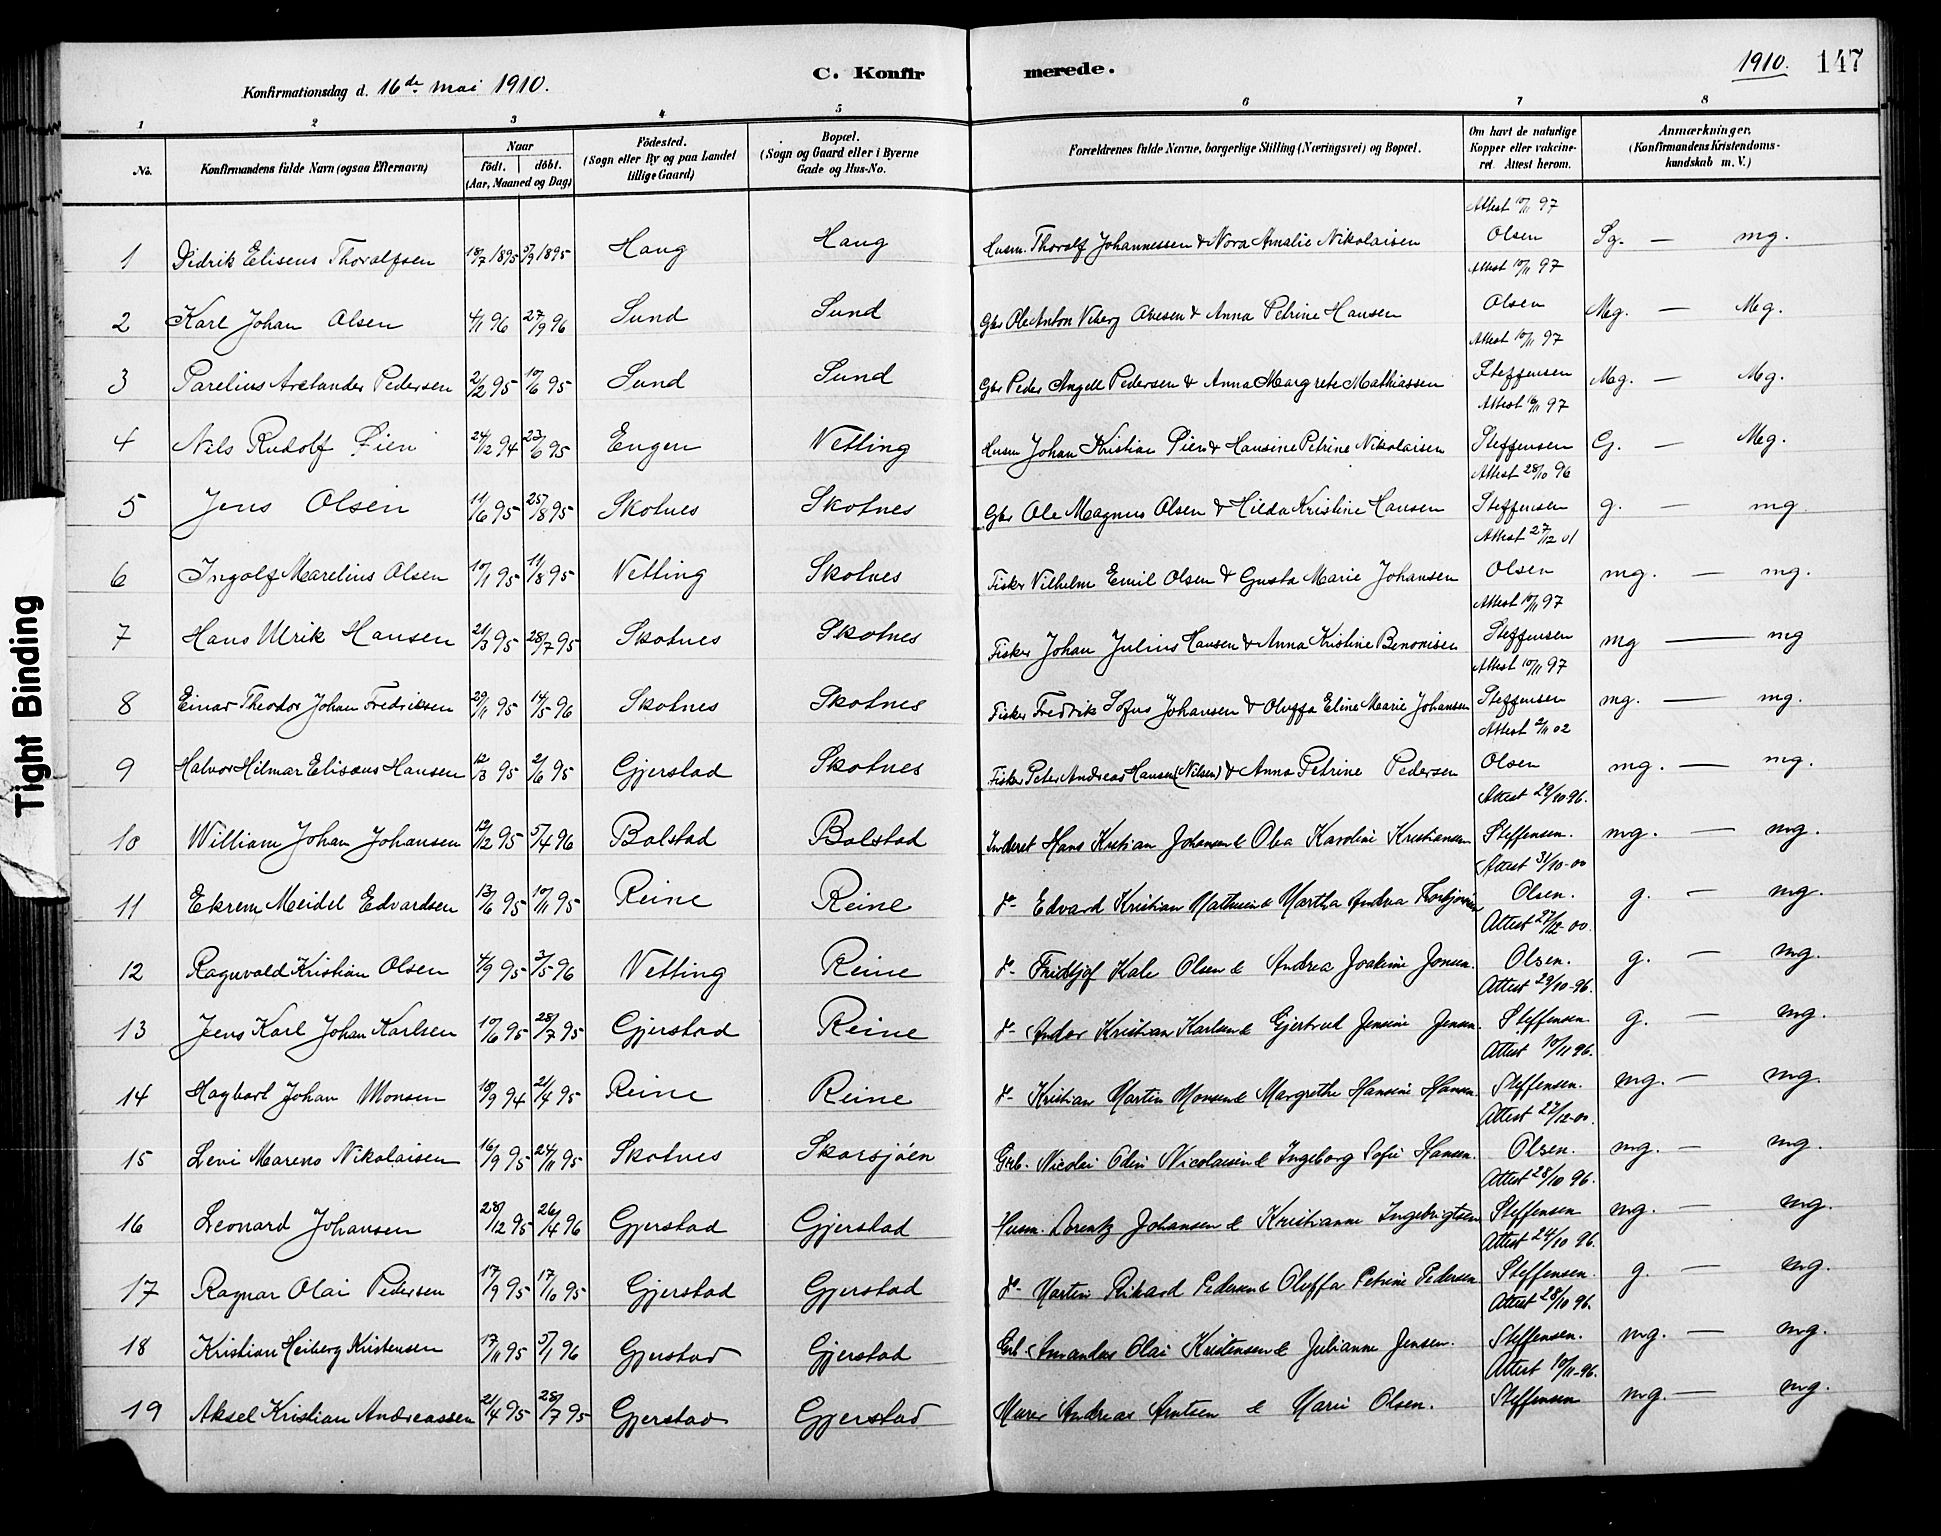 1910. 147
Konfirmationsdag d. 16de mai 1910.
C. Konfirmerede.
1 2 3 4 5 6 7 8
No. Konfirmandens fulde Navn (ogsaa Efternavn) Naar født. døbt. (Aar, Maaned og Dag) Fødested. (Sogn eller By og paa Landet tillige Gaard) Bopæl. (Sogn og Gaard eller i Byerne Gade og Hus-No. Forældrenes fulde Navne, borgerlige Stilling (Næringsvei) og Bopæl. Om havt de naturlige Kopper eller vakcineret. Attest herom. Anmærkninger. (Konfirmandens Kristendomskundskab m. V.)
Attest 10/11 97
1 Didrik Eliseus Thoralfsen 18/7 1895 5/9 1895 Haug Haug Husm. Thoralf Johannessen & Nora Amalie Nikolaisen Olsen Sg. — mg.
Attest 10/11 97
2 Karl Johan Olsen 4/1 96 27/9 96 Sund Sund Gbr Ole Anton Viberg Ovesen & Anna Petrine Hansen Olsen Mg. — Mg.
Attest 10/11 97
3 Parelius Arelander Pedersen 2/2 95 10/6 95 Sund Sund Gbr Peder Angell Pedersen & Anna Margrete Mathiassen Steffensen Mg. — Mg.
Attest 10/11 97
4 Nils Rudolf Pien 24/12 94 23/6 95 Engen Netting Husm Johan Kristian Pien & Hansine Petrine Nikolaisen Steffensen G. — Mg.
Attest 28/10 96
5 Jens Olsen 11/6 95 25/8 95 Skotnes Skotnes Gbr Ole Magnus Olsen & Hilda Kristine Hansen Steffensen g. — mg.
Attest 27/12 01
6 Ingolf Marelius Olsen 10/1 95 11/8 95 Netting Skotnes Fisker Vilhelm Emil Olsen & Gusta Marie Johansen Olsen mg. — mg.
Attest 10/11 97
7 Hans Ulrik Hansen 21/3 95 28/7 95 Skotnes Skotnes Fisker Johan Julius Hansen & Anna Kristine Benonisen Steffensen mg — mg
Attest 10/11 97
8 Einar Theodor Johan Fredriksen 29/11 95 14/5 96 Skotnes Skotnes Fisker Fredrik Sofus Johansen & Oluffa Eline Marie Johansen Steffensen mg. — mg.
Attest 2/11 02
9 Halvor Hilmar Elisæus Hansen 12/3 95 2/6 95 Gjerstad Skotnes Fisker Peter Andreas Hansen (Nilsen) & Anna Petrine Pedersen Olsen mg. — mg.
Attest 29/10 96.
10 William Johan Johansen 12/12 95 5/4 96 Bolstad Bolstad Inderst Hans Kristian Johansen & Olea Karoline Kristiansen Steffensen. mg. — mg.
Attest 31/10-00
11 Ekrem Meidel Edvardsen 13/6 95 10/11 95 Reine Reine do Edvard Kristian Mathisen & Martha Andrea Olsen. g. — mg.
Attest 27/12-00.
12 Ragnvald Kristian Olsen 4/9 95 3/5 96 Netting Reine do Fridtjof Kale Olsen & Andrea Joakime Jonsen. Olsen. g. — mg.
Attest 29/10-96.
13 Jens Karl Johan Karlsen 10/6 95 28/7 95 Gjerstad Reine do Andor Kristian Karlsen & Gjertrud Jensine Jensen. Steffensen. g. — mg.
Attest 10/11 96.
14 Hagbart Johan Monsen 10/9 94 21/4 95 Reine Reine do Kristian Martin Monsen & Margrethe Hansine Hansen. Steffensen. mg. — mg.
Attest 27/12-00.
15 Levi Marens Nikolaisen 16/9 95 24/11 95 Skotnes Skarsjøen Grb. Nicolai Odin Nicolaisen & Ingeborg Sofie Hansen. Olsen. mg. — mg.
Attest 28/10 96.
16 Leonard Johansen 28/12 95 26/4 96 Gjerstad Gjerstad Husm. Lorentz Johansen & Kristianne Ingebrigtsen Steffensen mg. — mg.
Attest 24/10 96.
17 Ragnar Olai Pedersen 17/9 95 17/10 95 Gjerstad Gjerstad do Martin Rikard Pedersen & Oluffa Petrine Pedersen Steffensen. g. — mg.
Attest 28/10 96.
18 Kristian Heiberg Kristensen 17/11 95 5/1 96 Gjerstad Gjerstad Grb. Amandus Olai Kristensen & Julianne Jensen. Steffensen. mg. — mg.
Attest 10/11-96.
19 Aksel Kristian Andreassen 21/4 95 28/7 95 Gjerstad Gjerstad Murer Andreas Arntsen & Marie Olsen. Steffensen mg. — mg.
Tight Binding